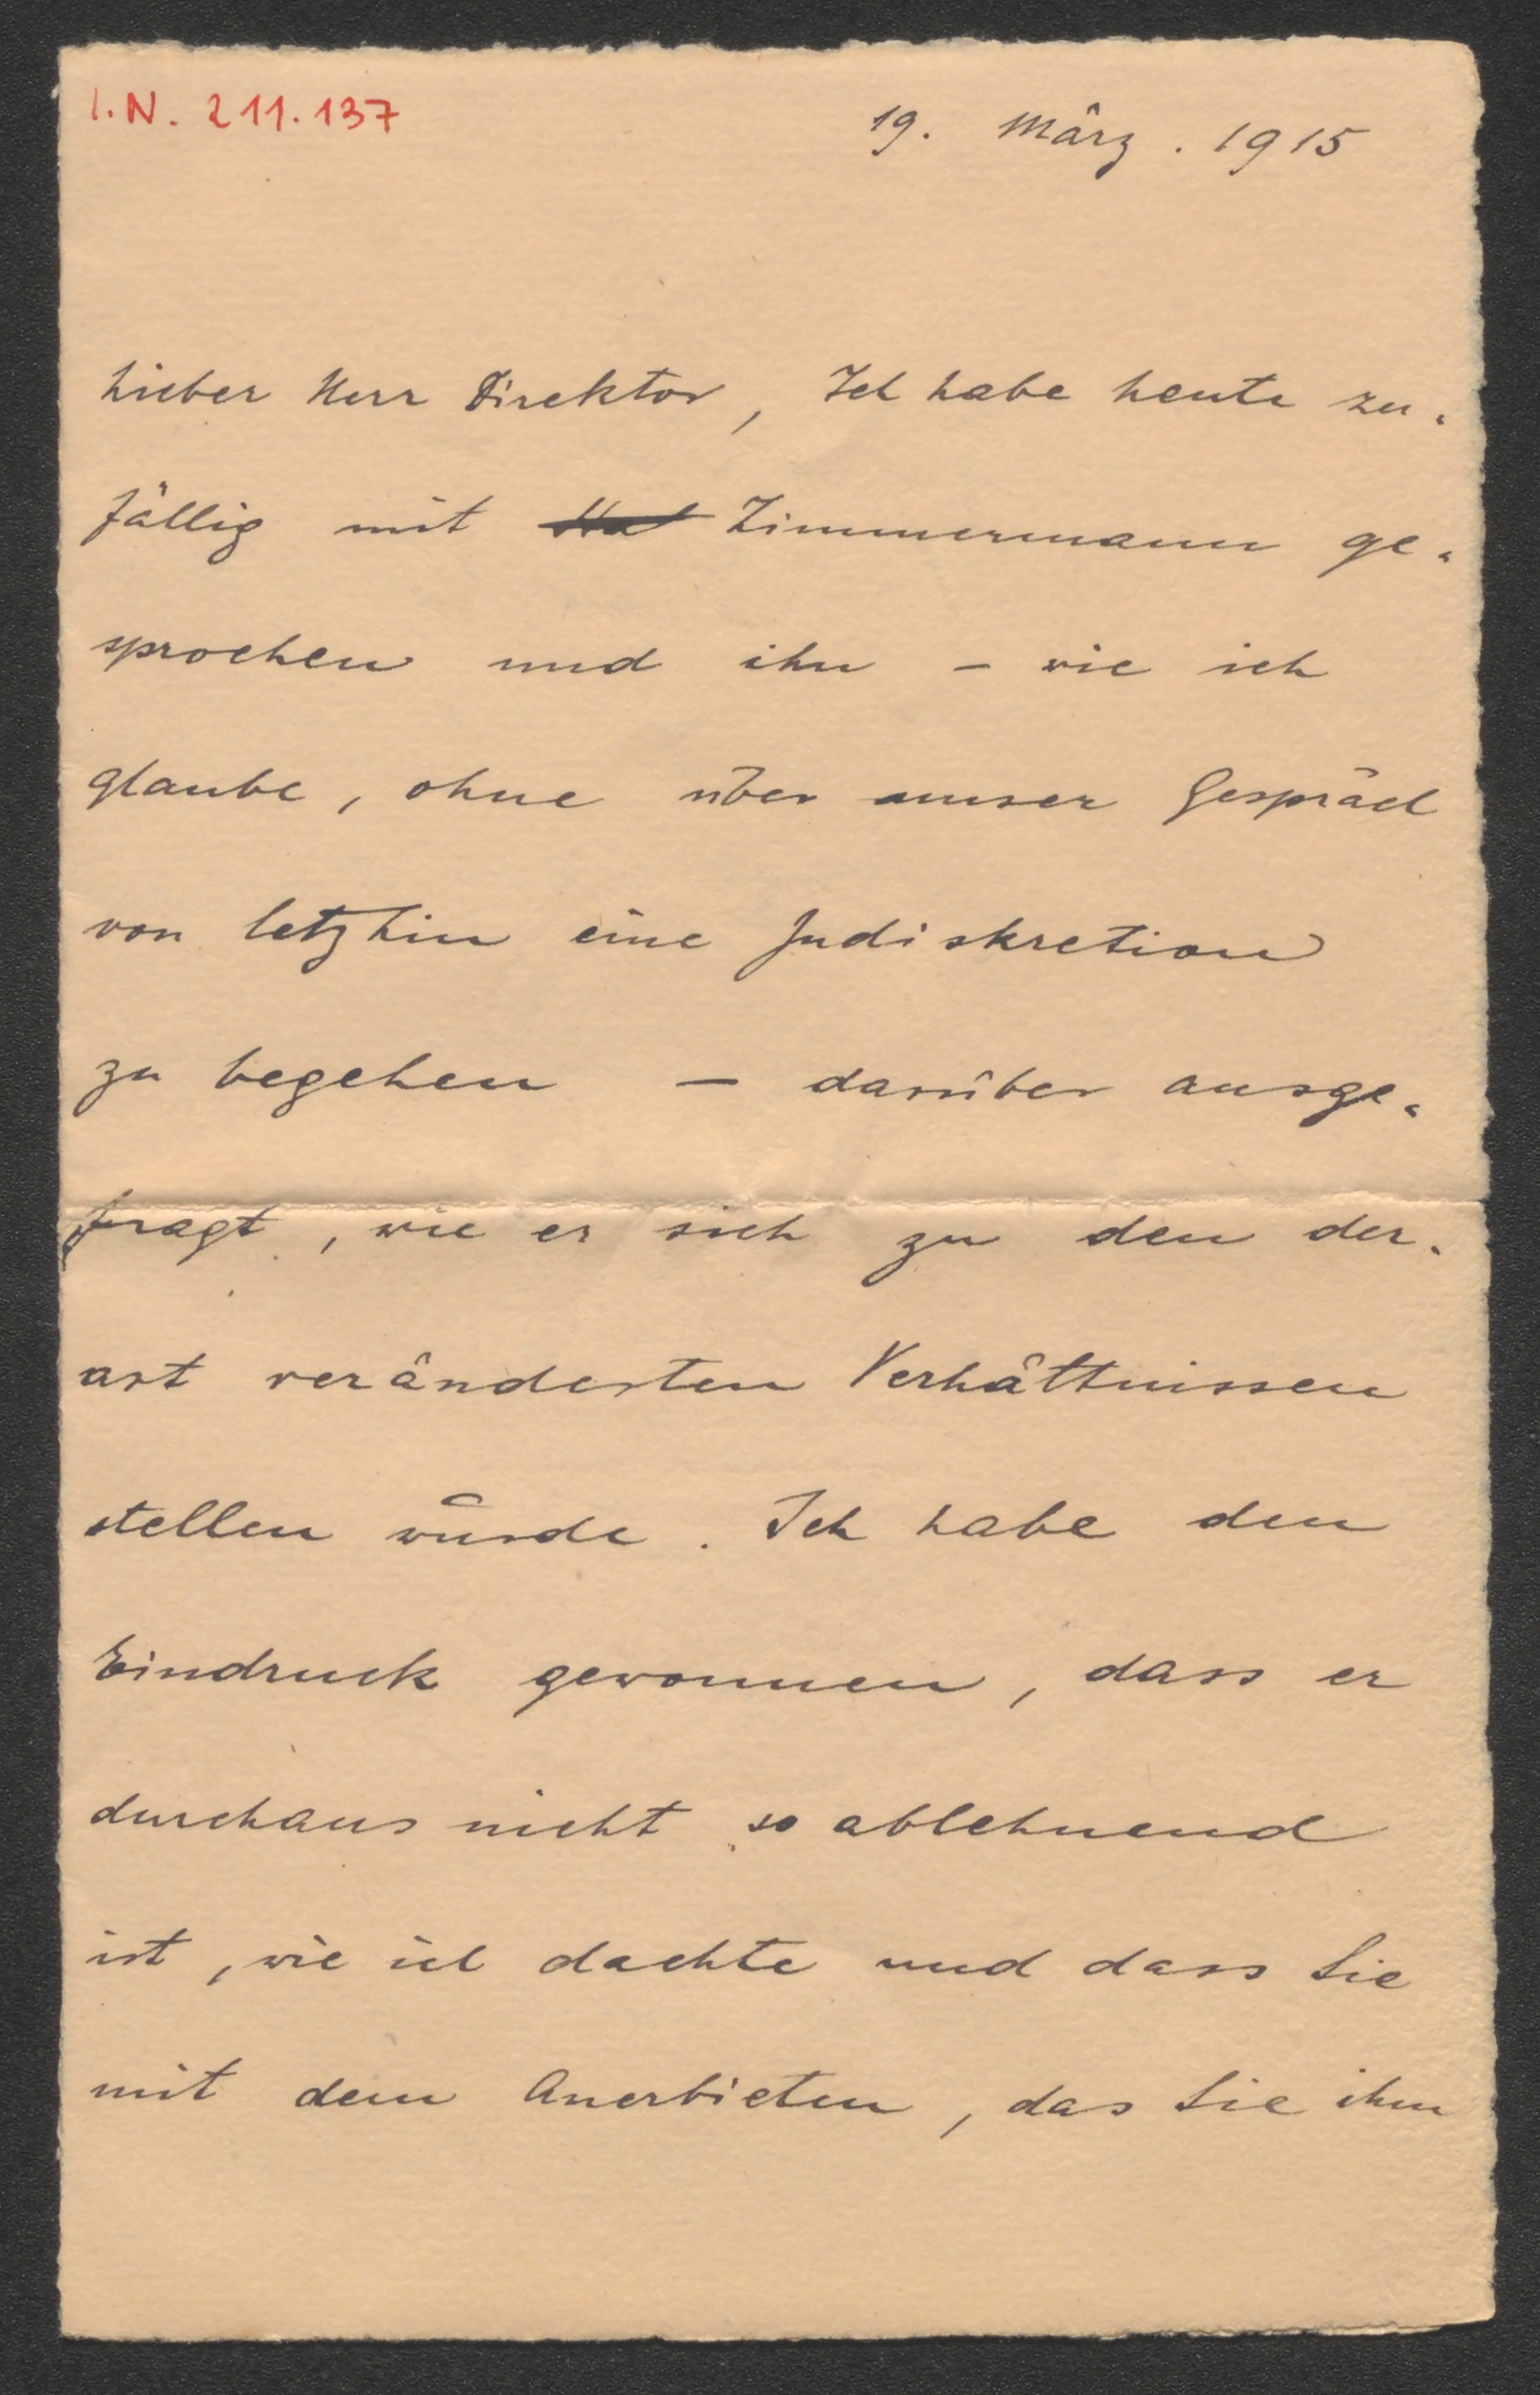 I.N. 211.137
19. März. 1915
Lieber Herr Direktor, Ich habe heute zu-
fällig mit Zimmermann ge-
sprochen und ihn – wie ich
glaube, ohne über unser Gespräch
von letzhin eine Indiskretion
zu begehen – darüber ausge-
fragt, wie er sich zu den der-
art veränderten Verhältnissen
stellen würde. Ich habe den
Eindruck gewonnen, dass er
durchaus nicht so ablehnend
ist, wie ich dachte und dass Sie
mit dem Anerbieten, das Sie ihm